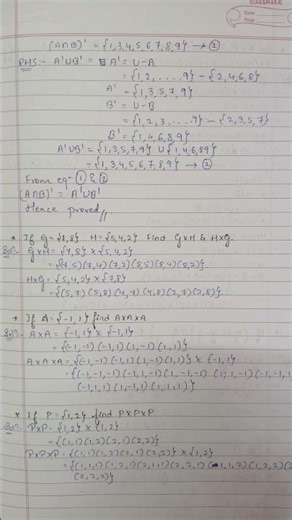 CLASSMATE
Date
Page
(A∩B)' = {1,3,4,5,6,7,8,9} → ①
RHS:- A'∪B' = A' = U-A
= {1,2, ....9} - {2,4,6,8}
A' = {1,3,5,7,9}
B' = U-B
= {1,2,3,...9} - {2,3,5,7}
B' = {1,4,6,8,9}
A'∪B' = {1,3,5,7,9} ∪ {1,4,6,8,9}
= {1,3,4,5,6,7,8,9} → ②
From eqn ① & ②
(A∩B)' = A'∪B'
Hence proved//
* If G = {7,8} H = {5,4,2} Find G×H & H×G.
Sol:- G×H = {7,8} × {5,4,2}
= {(7,5)(7,4)(7,2)(8,5)(8,4)(8,2)}
H×G = {5,4,2} × {7,8}
= {(5,7)(5,8)(4,7)(4,8)(2,7)(2,8)}
* If A = {-1,1} find A×A×A
Sol:- A×A = {-1,1} × {-1,1}
= {(-1,-1)(-1,1)(1,-1)(1,1)}
A×A×A = {(-1,-1)(-1,1)(1,-1)(1,1)} × {-1,1}
= {(-1,-1,-1)(-1,1,-1)(1,-1,-1)(1,1,-1)(-1,-1,1)
(-1,1,1)(1,-1,1)(1,1,1)}
* If P = {1,2} find P×P×P
Sol:- P×P = {1,2} × {1,2}
= {(1,1)(1,2)(2,1)(2,2)}
P×P×P = {(1,1)(1,2)(2,1)(2,2)} × {1,2}
= {(1,1,1)(1,2,1)(2,1,1)(2,2,1)(1,1,2)(1,2,2)
(2,2,2)}